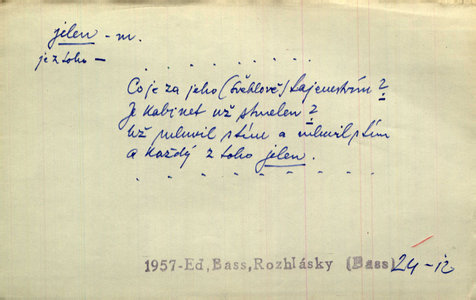 jelen - m.
je z toho -
. . . . . . . . . .
Co je za jeho (Švehlově) tajemstvím?
Je kabinet už stmelen?
Už mluvil s tím a mluvil s tím
a každý z toho jelen.
. . . . . . . . .
1957-Ed,Bass,Rozhlásky (Bass) 24-